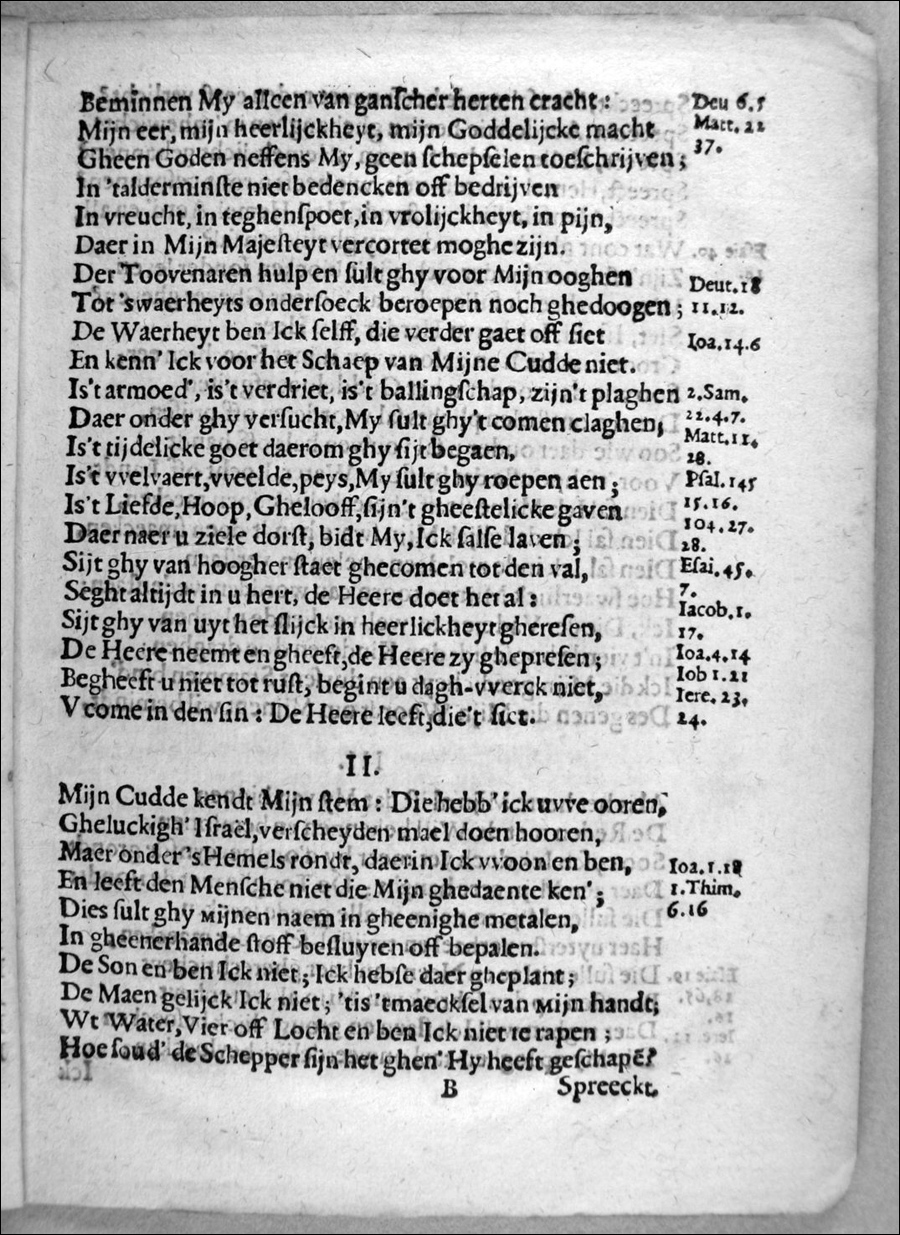 Beminnen My alleen van ganſcher herten cracht: Deu 6.5
Mijn eer, mijn heerlijckheyt, mijn Goddelijcke macht Matt. 22
Gheen Goden neffens My, geen ſchepſelen toeſchrijven; 37.
In 'talderminſte niet bedencken off bedrijven
In vreucht, in teghenſpoet, in vrolijckheyt, in pijn,
Daer in Mijn Majeſteyt vercortet moghe zijn.
Der Toovenaren hulp en ſult ghy voor Mijn ooghen Deut. 18
Tot 'swaerheyts onderſoeck beroepen noch ghedoogen; 11.12.
De Waerheyt ben Ick ſelff, die verder gaet off ſiet Ioa. 14.6
En kenn' Ick voor het Schaep van Mijne Cudde niet.
Is't armoed', is't verdriet, is't ballingſchap, zijn't plaghen 2. Sam.
Daer onder ghy verſucht, My ſult ghy't comen claghen, 22.4.7.
Is't tijdelicke goet daerom ghy ſijt begaen, Matt. 11.
28.
Is't vvelvaert, vveelde, peys, My ſult ghy roepen aen; Pſal. 145
Is't Liefde, Hoop, Ghelooff, ſijn't gheeſtelicke gaven 15.16.
Daer naer u ziele dorſt, bidt My, Ick ſalſe laven; 104.27.
28.
Sijt ghy van hoogher ſtaet ghecomen tot den val, Eſai. 45.
Seght altijdt in u hert, de Heere doet het al: 7.
Sijt ghy van uyt het ſlijck in heerlickheytghereſen, Iacob. 1.
17.
De Heere neemt en gheeft, de Heere zy ghepreſen; Ioa. 4.14
Begheeft u niet tot ruſt, begint u dagh-vverck niet, Iob 1.21
Iere. 23.
V come in den ſin: De Heere leeft, die't ſiet. 24.
II.
Mijn Cudde kendt Mijn ſtem: Die hebb' ick uvre ooren,
Gheluckigh' Iſraël, verſcheyden mael doen hooren,
Maer onder 's Hemels rondt, daer in Ick vvoon en ben, Ioa. 1.18
En leeft den Menſche niet die Mijn ghedaente ken'; 1. Thim.
Dies ſult ghy Mijnen naem in gheenighe metalen, 6.16
In gheenerhande ſtoff beſluyten off bepalen.
De Son en ben Ick niet; Ick hebſe daer gheplant;
De Maen gelijck Ick niet; 'tis 'tmaeckſel van Mijn handt;
Wt Water, Vier off Locht en ben Ick niet te rapen;
Hoe ſoud' de Schepper ſijn het ghen' Hy heeft geſchapē?
B Spreeckt.